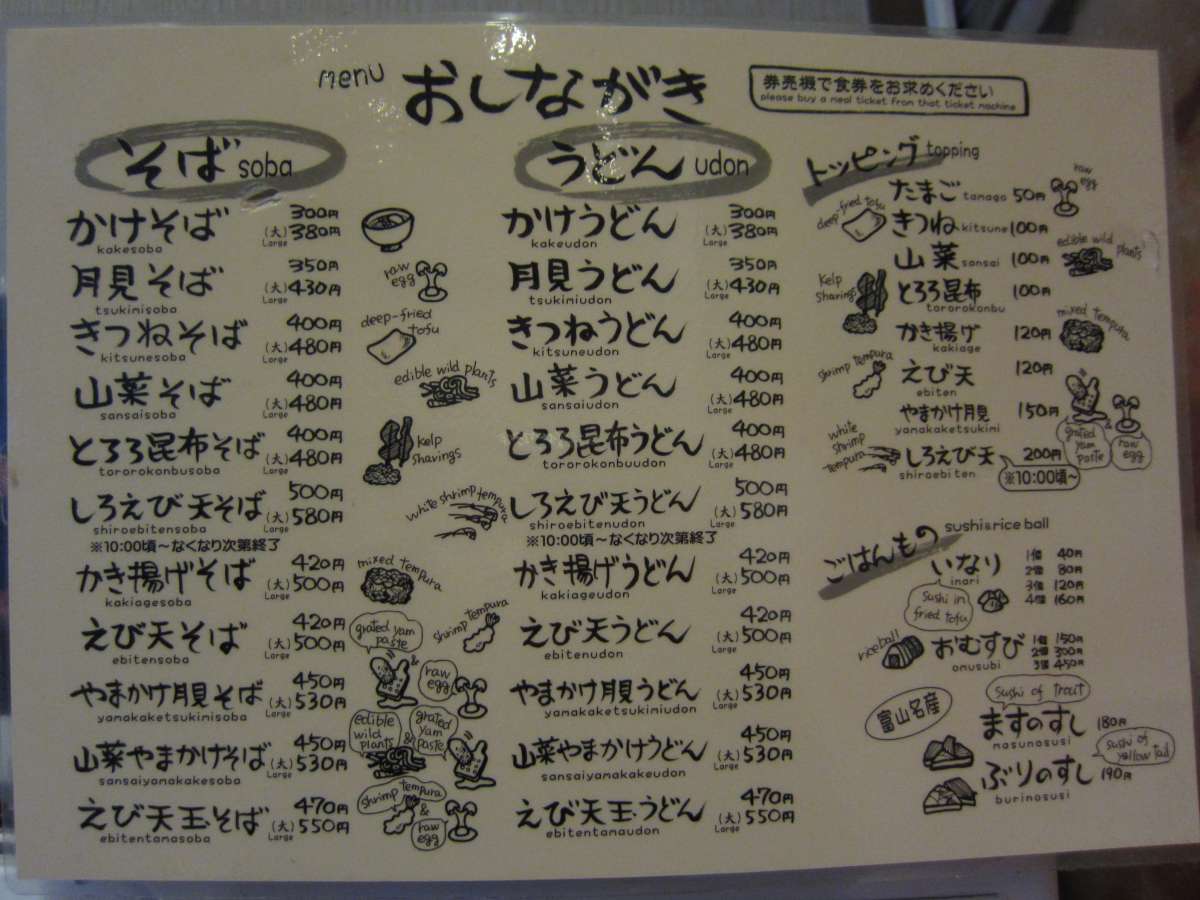 menu おしながき
券売機で食券をお求めください
please buy a meal ticket from that ticket machine
そば soba
かけそば 300円
kakesoba (大)Large 380円
月見そば 350円
tsukimisoba (大)Large 430円
raw egg
きつねそば 400円
kitsunesoba (大)Large 480円
deep-fried tofu
山菜そば 400円
sansaisoba (大)Large 480円
edible wild plants
とろろ昆布そば 400円
tororokonbusoba (大)Large 480円
kelp shavings
しろえび天そば 500円
shiroebitensoba (大)Large 580円
white shrimp tempura
※10:00頃~なくなり次第終了
かき揚げそば 420円
kakiagesoba (大)Large 500円
mixed tempura
えび天そば 420円
ebitensoba (大)Large 500円
shrimp tempura
やまかけ月見そば 450円
yamakaketsukimisoba (大)Large 530円
grated yam paste & raw egg
山菜やまかけそば 450円
sansaiyamakakesoba (大)Large 530円
edible wild plants & grated yam paste
えび天玉そば 470円
ebitentamasoba (大)Large 550円
shrimp tempura & raw egg
うどん udon
かけうどん 300円
kakeudon (大)Large 380円
月見うどん 350円
tsukimiudon (大)Large 430円
きつねうどん 400円
kitsuneudon (大)Large 480円
山菜うどん 400円
sansaiudon (大)Large 480円
とろろ昆布うどん 400円
tororokonbuudon (大)Large 480円
しろえび天うどん 500円
shiroebitenudon (大)Large 580円
※10:00頃~なくなり次第終了
かき揚げうどん 420円
kakiageudon (大)Large 500円
えび天うどん 420円
ebitenudon (大)Large 500円
やまかけ月見うどん 450円
yamakaketsukimiudon (大)Large 530円
山菜やまかけうどん 450円
sansaiyamakakeudon (大)Large 530円
えび天玉うどん 470円
ebitentamaudon (大)Large 550円
トッピング topping
たまご tamago 50円
raw egg
deep-fried tofu
きつね kitsune 100円
山菜 sansai 100円
edible wild plants
Kelp shavings
とろろ昆布 100円
tororokonbu
かき揚げ 120円
kakiage
mixed tempura
shrimp tempura
えび天 120円
ebiten
やまかけ月見 150円
yamakaketsukimi
grated yam paste & raw egg
white shrimp tempura
しろえび天 200円
shiroebiten
※10:00頃~
ごはんもの sushi&rice ball
いなり 1個 40円
inari 2個 80円
3個 120円
4個 160円
sushi in fried tofu
rice ball
おむすび 1個 150円
omusubi 2個 300円
3個 450円
富山名産
sushi of trout
ますのすし 180円
masunosusi
sushi of yellow tail
ぶりのすし 190円
burinosusi